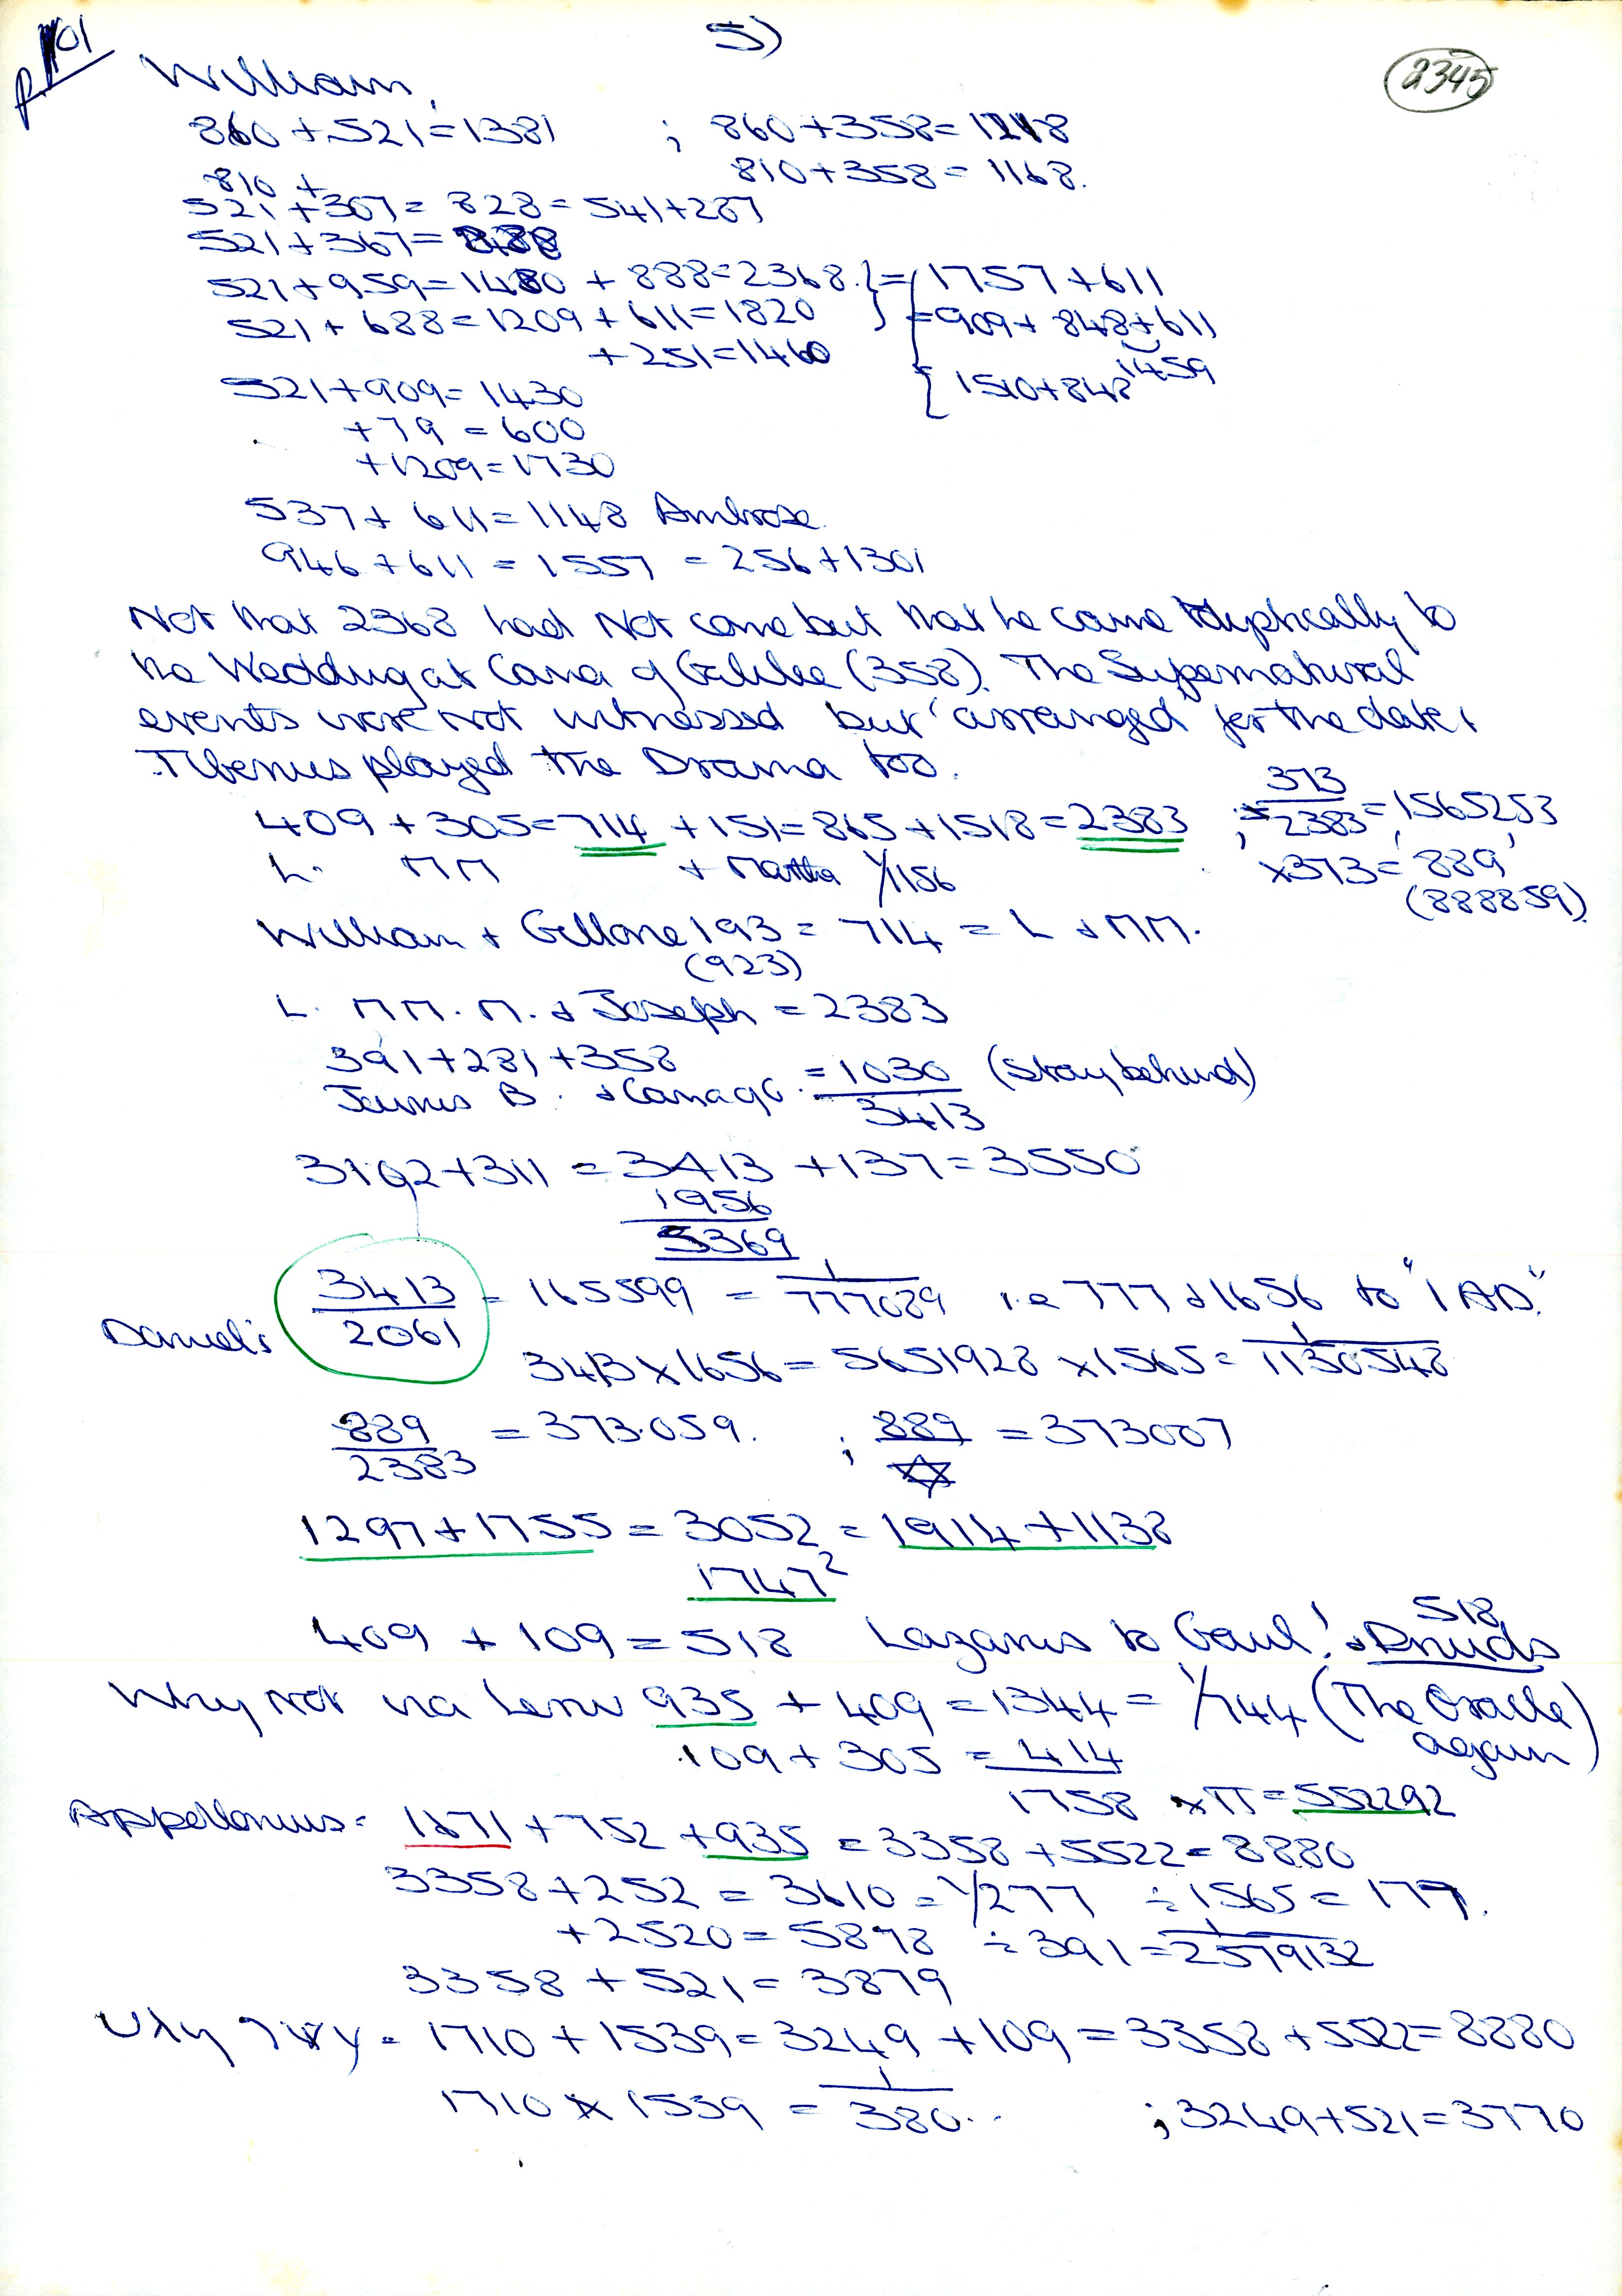 P101
5)
2345
William,
860 + 521 = 1381 ; 860 + 358 = 1218
810 + 810 + 358 = 1168.
521 + 307 = 828 = 541 + 287
521 + 367 = 888
521 + 959 = 1480 + 888 = 2368. } = 1757 + 611
521 + 688 = 1209 + 611 = 1820 } = 909 + 848 + 611
+ 251 = 1460 1459
521 + 909 = 1430 [ 1510 + 848
+ 79 = 600
+ 1209 = 1730
537 + 611 = 1148 Ambrose.
946 + 611 = 1557 = 256 + 1301
Not that 2368 had Not come but that he came to
the Wedding at Cana of Galilee (358). The Supernatural
events were not witnessed but 'arranged' for the date.
Tiberius played the Drama too.
409 + 305 = 714 + 151 = 865 + 1518 = 2383 ; 373/2383 = 1565253
L. MM + Martha 1/1156 × 373 = 889
(888859)
William + Gellone 193 = 714 = L + MM.
(923)
L. MM. M. + Joseph = 2383
391 + 281 + 358
B. + Cana of G. = 1030 (Stay behind)
3413
3102 + 311 = 3413 + 137 = 3550
1956
5369
Daniel's 3413/2061 = 165599 = 1/777089 i.e 777 + 1656 to "1 AD."
3413 × 1656 = 5651928 × 1565 = 1/1130548
889/2383 = 373.059. ; 889/✡ = 373007
1297 + 1755 = 3052 = 1914 + 1138
1747²
518
409 + 109 = 518 Lazarus to Gaul! + Druids
Why not via 935 + 409 = 1344 = 1/744 (The Oracle
109 + 305 = 414 again)
1758 × π = 552292
Appellonius = 1671 + 752 + 935 = 3358 + 5522 = 8880
3358 + 252 = 3610 = 1/277 ÷ 1565 = 177.
+ 2520 = 5878 ÷ 391 = 1/2579132
3358 + 521 = 3879
= 1710 + 1539 = 3249 + 109 = 3358 + 5522 = 8880
1710 × 1539 = 1/380.. ; 3249 + 521 = 3770